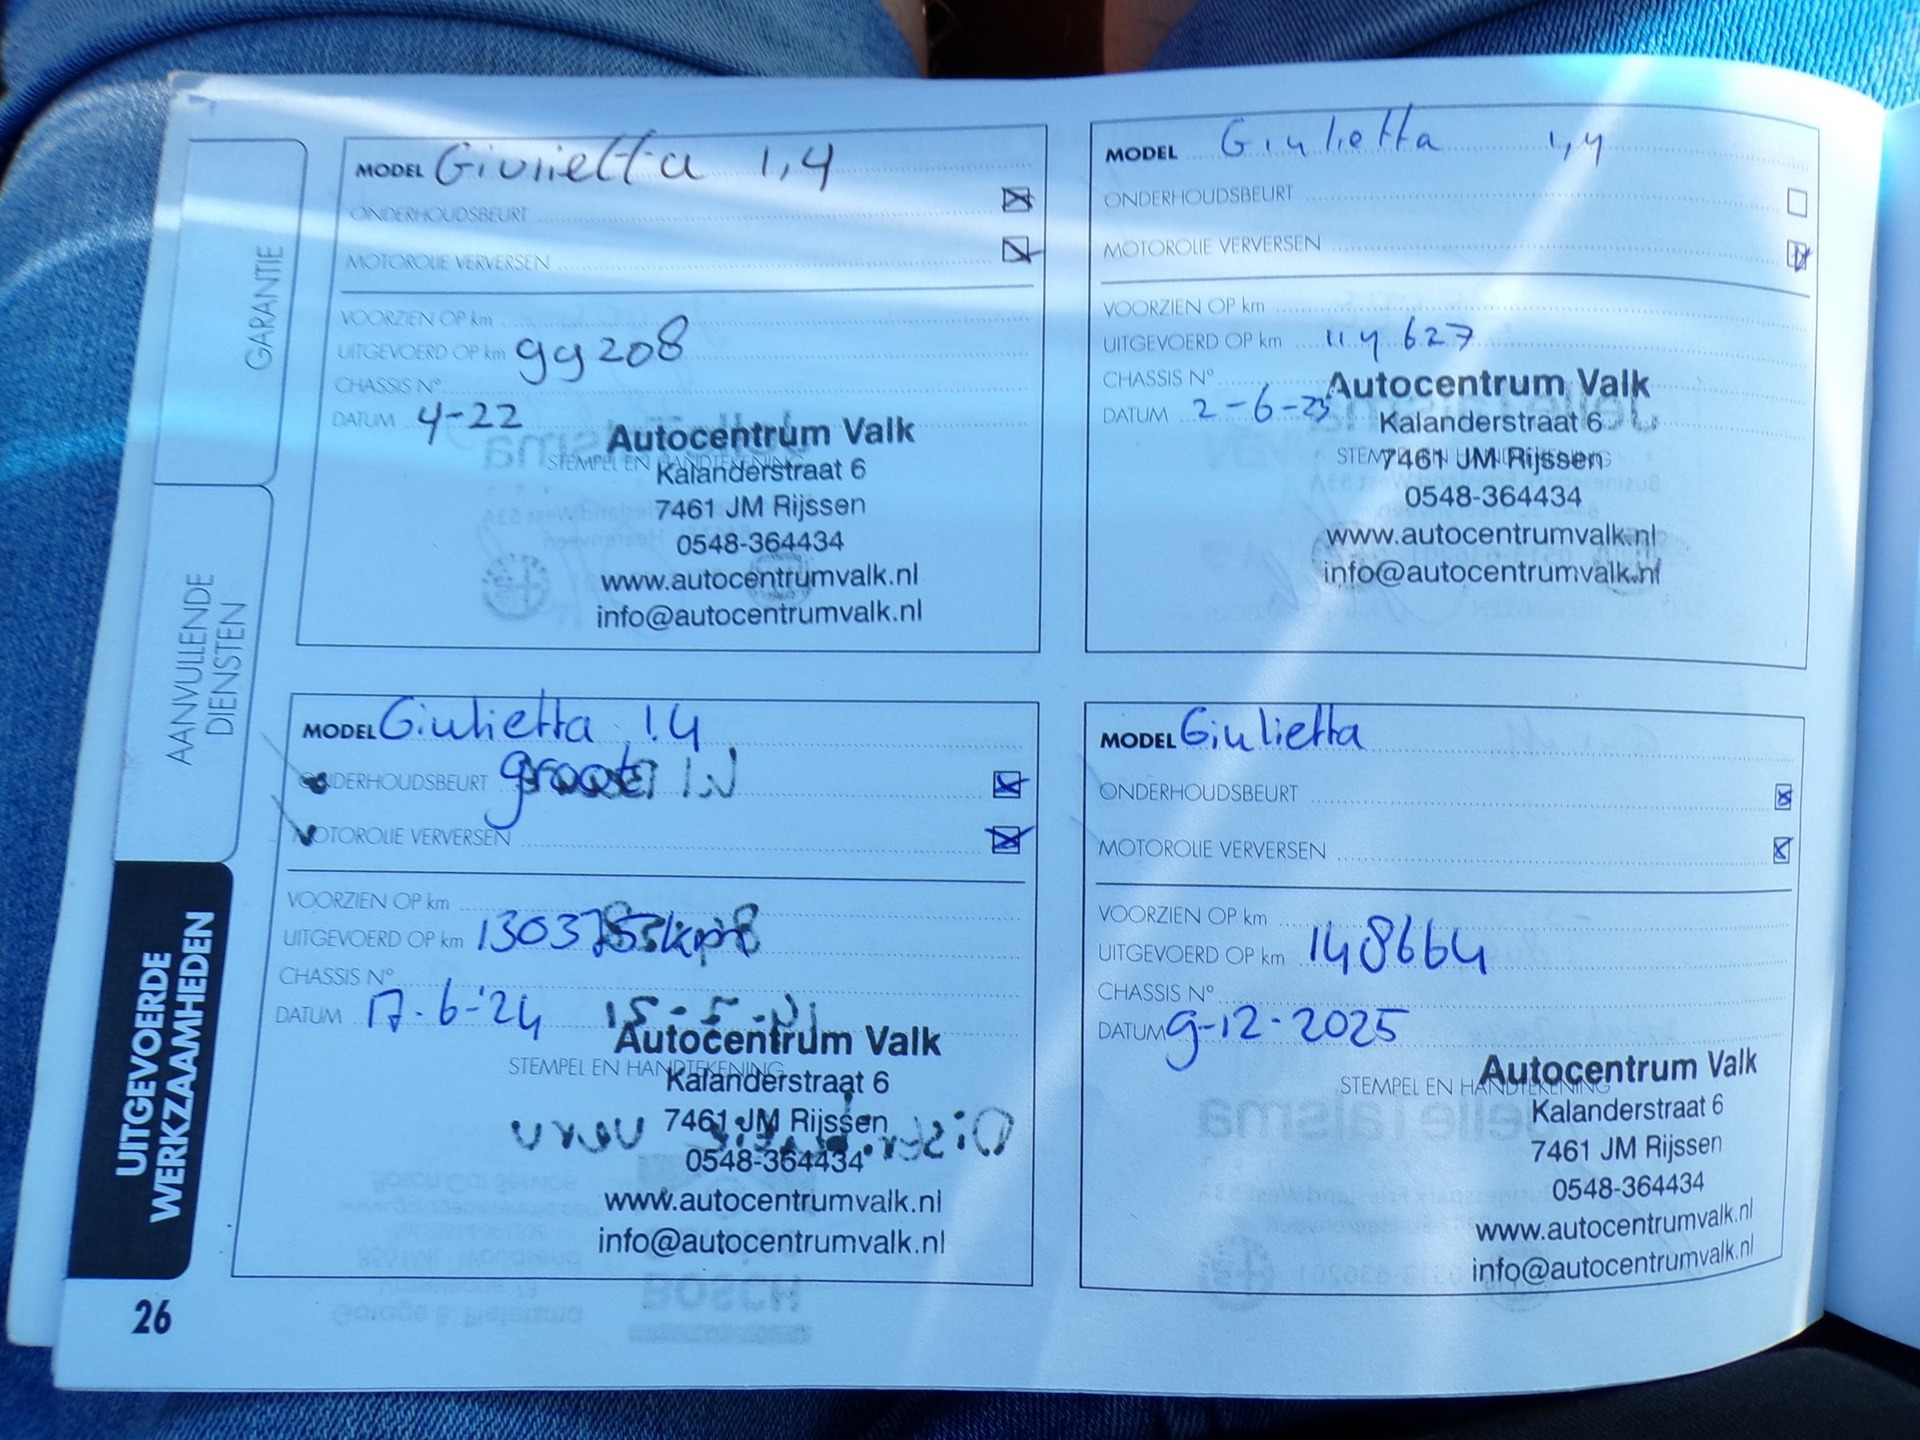 GARANTIE
AANVULLENDE
DIENSTEN
UITGEVOERDE
WERKZAAMHEDEN
26
MODEL Giulietta 1,4
ONDERHOUDSBEURT
MOTOROLIE VERVERSEN
VOORZIEN OP km
UITGEVOERD OP km 99208
CHASSIS N°
DATUM 4-22
STEMPEL EN HANDTEKENING
Autocentrum Valk
Kalanderstraat 6
7461 JM Rijssen
0548-364434
www.autocentrumvalk.nl
info@autocentrumvalk.nl
MODEL Giulietta 1,4
ONDERHOUDSBEURT
MOTOROLIE VERVERSEN
VOORZIEN OP km
UITGEVOERD OP km 114 627
CHASSIS N°
DATUM 2-6-23
STEMPEL EN HANDTEKENING
Autocentrum Valk
Kalanderstraat 6
7461 JM Rijssen
0548-364434
www.autocentrumvalk.nl
info@autocentrumvalk.nl
MODEL Giulietta 1.4
ONDERHOUDSBEURT groot
MOTOROLIE VERVERSEN
VOORZIEN OP km
UITGEVOERD OP km
CHASSIS N°
DATUM 17-6-'24
STEMPEL EN HANDTEKENING
Autocentrum Valk
Kalanderstraat 6
7461 JM Rijssen
0548-364434
www.autocentrumvalk.nl
info@autocentrumvalk.nl
MODEL Giulietta
ONDERHOUDSBEURT
MOTOROLIE VERVERSEN
VOORZIEN OP km
UITGEVOERD OP km 148664
CHASSIS N°
DATUM 9-12-2025
STEMPEL EN HANDTEKENING
Autocentrum Valk
Kalanderstraat 6
7461 JM Rijssen
0548-364434
www.autocentrumvalk.nl
info@autocentrumvalk.nl